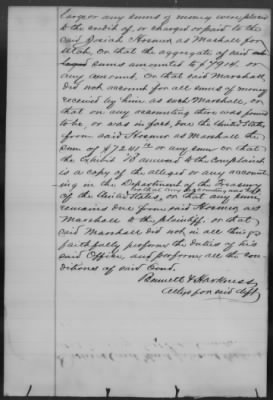 large or any sums of money were placed
to the credit of, or charged or paid to the
said Josiah Hosmer as Marshall for
Utah, or that the aggregate of said
sums amounted to $7914. or
any amount. Or that said Marshall,
did not account for all sums of money
received by him, as such Marshall, or
that on any accounting there was found
to be, or was in fact due the United States
from said Hosmer as Marshall the
sum of $7241 or any sum or that
the Exhibit "B" annexed to the Complaint
is a copy of the alleged or any account-
ing in the Department of the Treasury
of the United States, or that any sum,
remains due from said Hosmer as
Marshall to the plaintiff, or that
said Marshall did not in all things
faithfully perform the duties of his
said Office, and perform, all the con-
ditions of said Bond.
Bennett & Harkness
Attys for said dft